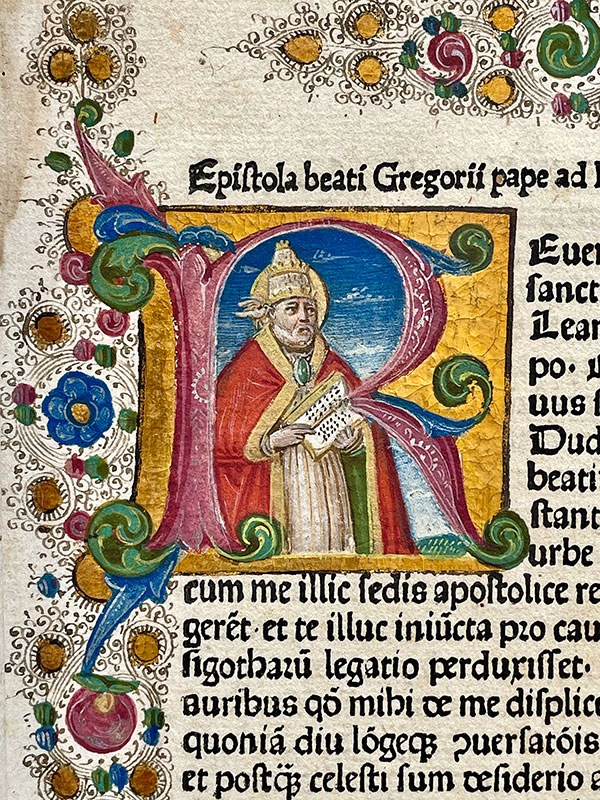 Epiſtola beati Gregorii pape ad
R
Euer
ſanct
Lean
po·
uus ſ
Dud
beati
ſtant
urbe
cum me illic ſedis apoſtolice re
gerēt· et te illuc iniūcta pro cau
ſigotharū legatio perduxiſſet·
auribus qō mihi de me diſplice
quoniā diu lōgeqꝫ ꝯuerſatōis
et poſtq̄ꝫ celeſti ſum deſiderio a